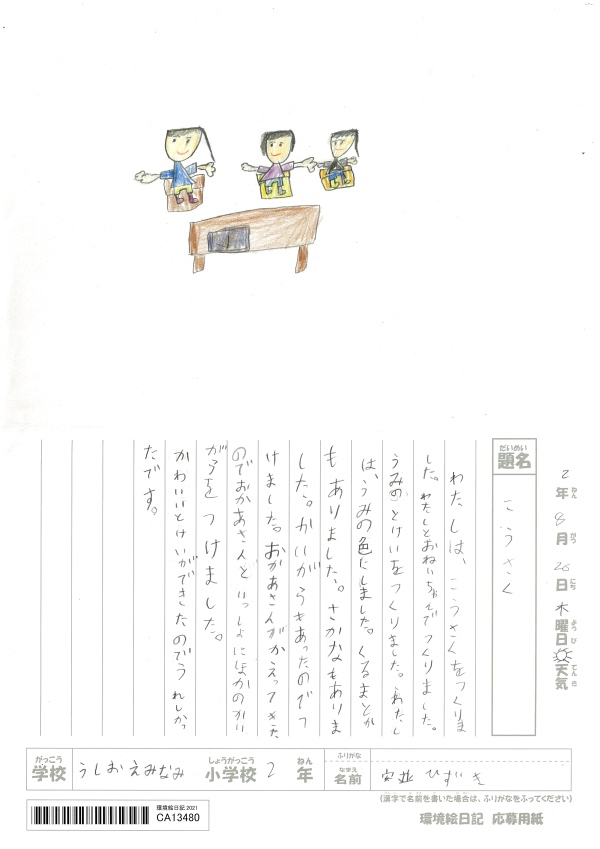 2年8月26日木曜日 天気
ねん がつ にち ようび てんき
だいめい
題名
こうさく
わたしは、こうさくをつくりま
した。わたしとおねいちゃんでつくりました。
うみの、とけいをつくりました。わたし
は、うみの色にしました。くるまとか
もありました。さかなもありま
した。かいがらもあったのでつ
けました。おかあさんがかえってきた
のでおかあさんといっしょにほかのかい
がらをつけました。
かわいいとけいができたのでうれしかっ
たです。
がっこう しょうがっこう ねん
学校 うしおえみなみ 小学校 2年
ふりがな
なまえ
名前 ひずき
(漢字で名前を書いた場合は、ふりがなをふってください)
環境絵日記 2021
CA13480
環境絵日記 応募用紙